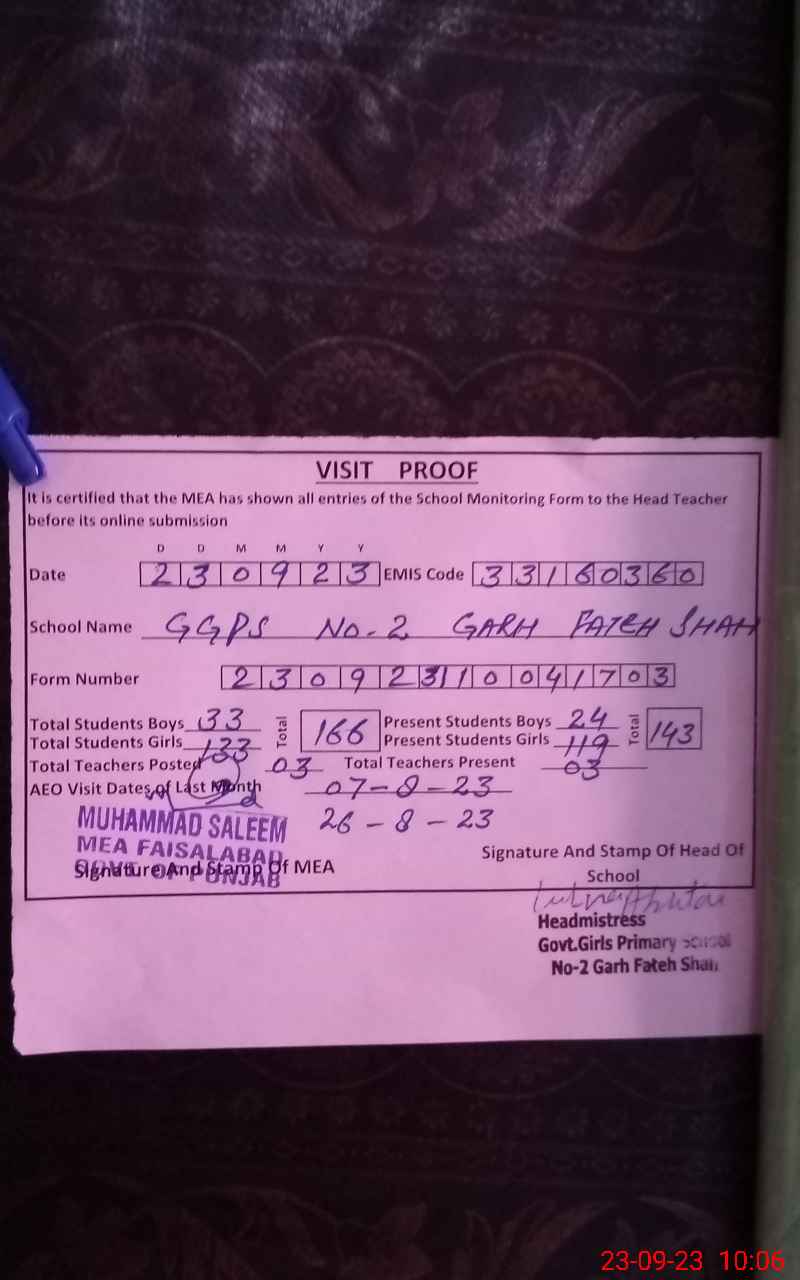 VISIT PROOF
It is certified that the MEA has shown all entries of the School Monitoring Form to the Head Teacher
before its online submission
D D M M Y Y
Date 2 3 0 9 2 3 EMIS Code 3 3 1 6 0 3 6 0
School Name GGPS No-2 GARH FATEH SHAH
Form Number 2 3 0 9 2 3 1 0 0 4 1 7 0 3
Total Students Boys 33 Total 166 Present Students Boys 24 Total 143
Total Students Girls 133 Present Students Girls 119
Total Teachers Posted 03 Total Teachers Present 03
AEO Visit Dates of Last Month 07-8-23
26-8-23
MUHAMMAD SALEEM
MEA FAISALABAD
GOVT. OF PUNJAB
Signature And Stamp Of MEA
Signature And Stamp Of Head Of
School
Headmistress
Govt.Girls Primary School
No-2 Garh Fateh Shah
23-09-23 10:06